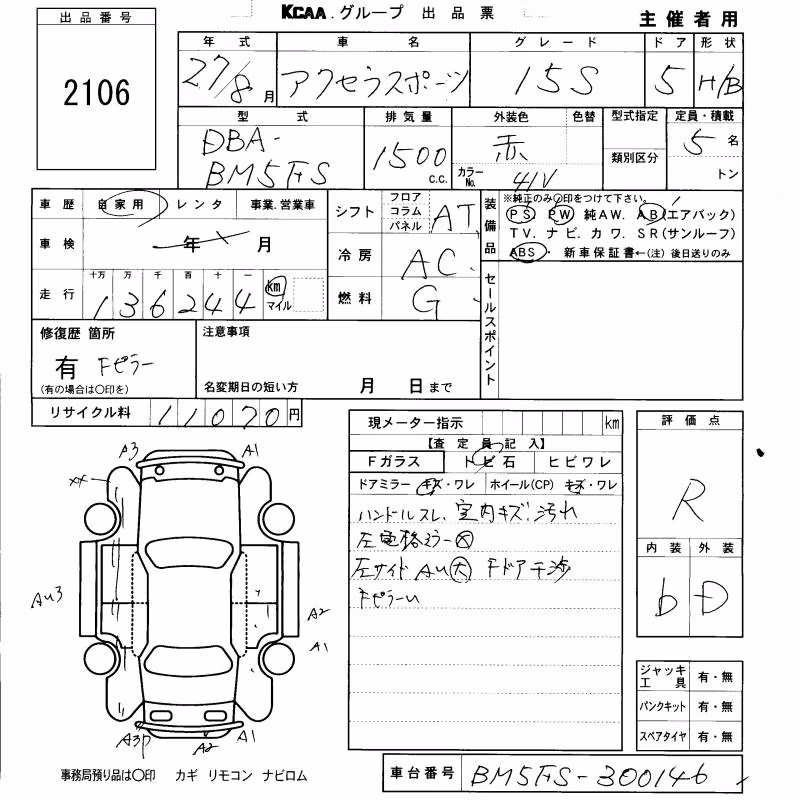 KCAA.グループ 出品票
主催者用
出品番号
2106
年式 車名 グレード ドア 形状
27/8月 アクセラスポーツ 15S 5 H/B
型式 排気量 外装色 色替 型式指定 定員・積載
DBA-
BM5FS
1500 c.c.
赤
カラーNo. 41V
類別区分
5名
トン
車歴 自家用 レンタ 事業.営業車
車検 年 月
走行 十万 万 千 百 十 一
136244 km マイル
シフト フロア コラム パネル AT
冷房 AC
燃料 G
装備品
※純正のみ〇印をつけて下さい。
PS PW 純AW. AB(エアバック)
TV. ナビ. カワ. SR(サンルーフ)
ABS・ 新車保証書←(注)後日送りのみ
セールスポイント
修復歴 箇所
有 Fピラー
(有の場合は〇印を)
注意事項
名変期日の短い方 月 日まで
リサイクル料 11070円
現メーター指示 km
【査定員記入】
Fガラス トビ石 ヒビワレ
ドアミラー キズ・ワレ ホイール(CP) キズ・ワレ
ハンドルスレ. 室内キズ.汚れ
左電格ミラー大
左サイド AU大 Fドア干渉
FピラーU
評価点
R
内装 外装
b D
ジャッキ工具 有・無
パンクキット 有・無
スペアタイヤ 有・無
A3 A1
XX
AU3
A2
A1
A3P A2 A1
事務局預り品は〇印 カギ リモコン ナビロム
車台番号 BM5FS-300146